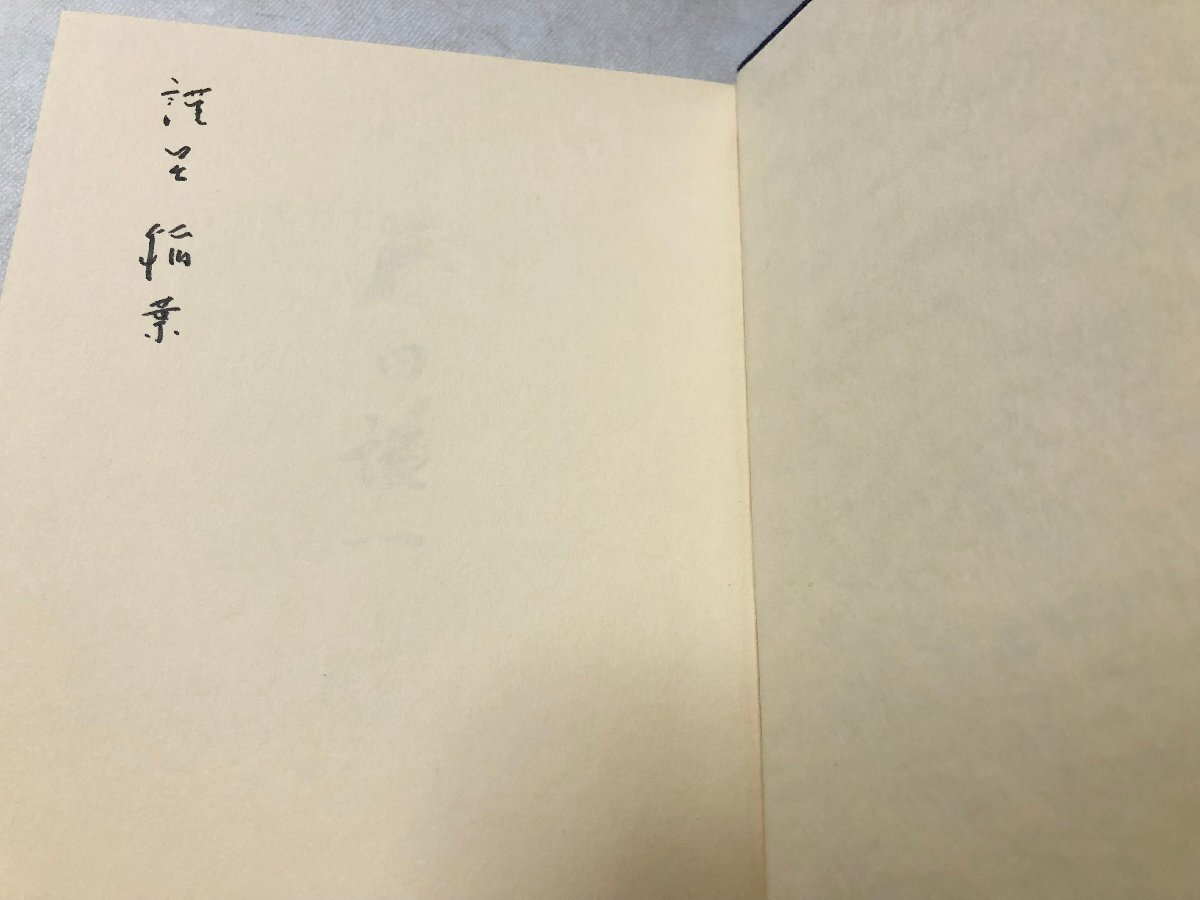 謹呈 稲葉